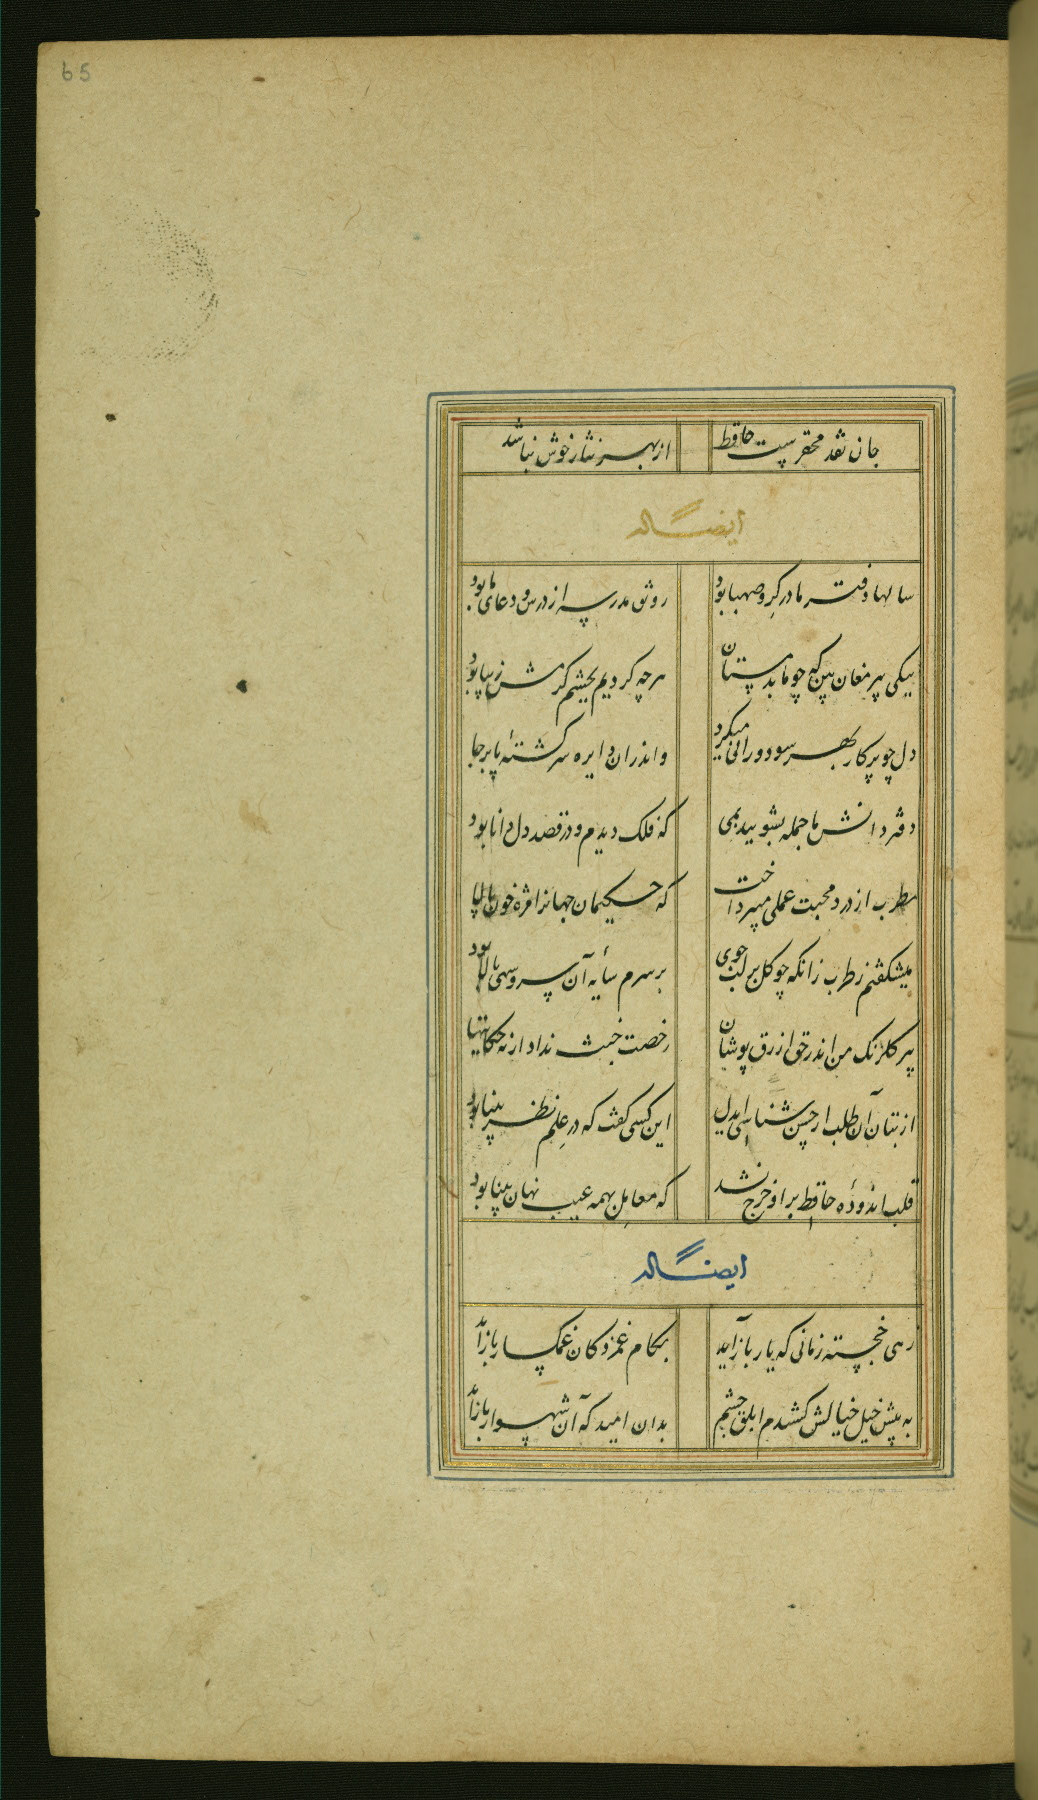 65
جان نقد محقر ست حافظ
از بهر نثار خوش نباشد
ایضاً له
سالها دفتر ما در گرو صهبا بود
رونق مدرسه از درس و دعای ما بود
نیکی پیر مغان بین که چو ما بدمستان
هرچه کردیم بچشم کرمش زیبا بود
دل چو پرکار بهر سو دورانی میکرد
واندران دایره سرگشتهٔ پا برجا
دفتر دانش ما جمله بشویید بمی
که فلک دیدم و در قصد دل دانا بود
مطرب از درد محبت عملی میپرداخت
که حکیمان جهانرا مژه خون پالا
میشکفتم ز طرب زانکه چو گل بر لب جوی
بر سرم سایه آن سرو سهی بالا بود
پیر گلرنگ من اندر حق ازرق پوشان
رخصت خبث نداد ارنه حکایتها
از بتان آن طلب ار حسن شناسی ایدل
این کسی گفت که در علم نظر بینا بود
قلب اندوده حافظ بر او خرج نشد
که معامل بهمه عیب نهان بینا بود
ایضاً له
زهی خجسته زمانی که یار باز آید
بکام غمزدگان غمگسار باز آید
به پیش خیل خیالش کشیدم ابلق چشم
بدان امید که آن شهسوار باز آید